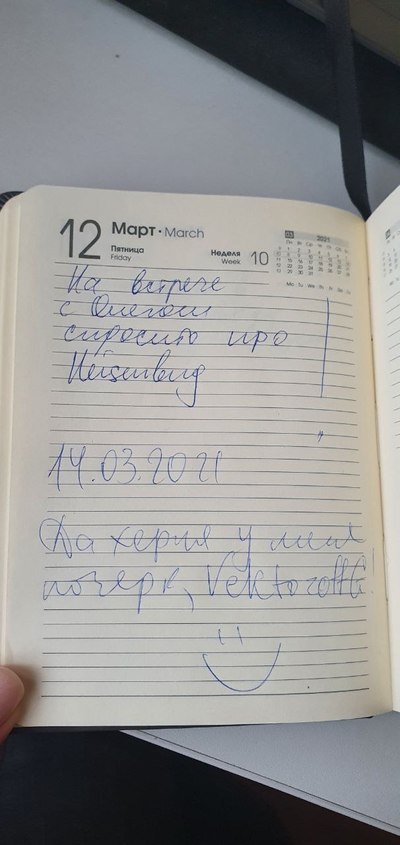 12 Март · March
Пятница
Friday
Неделя
Week
10
03 2021
На встрече
с Олегом
спросить про
Heisenburg
14.03.2021
Да херня у меня
почерк, VektoroffG!